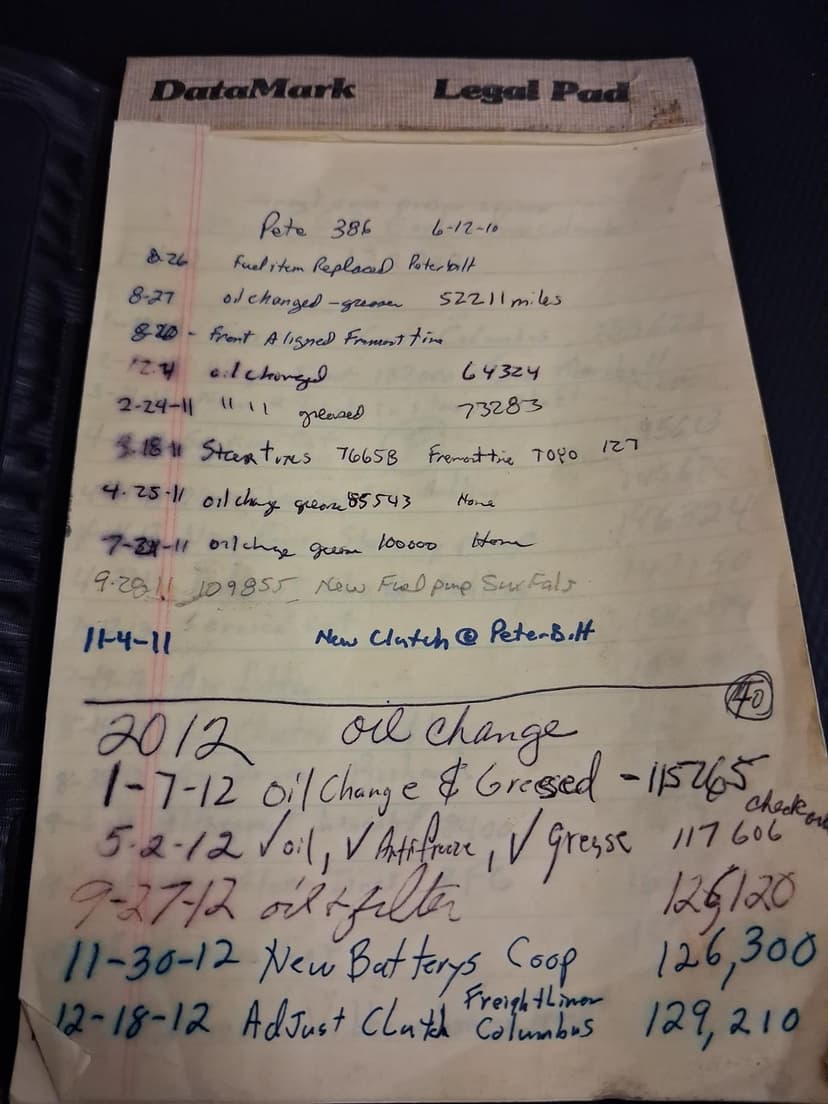 DataMark Legal Pad
Pete 386 6-12-10
8-26 Fuel item Replaced Peterbilt
8-27 oil changed - grease 52211 miles
8-20 - Front Aligned Fremont tire
12-4 oil changed 64324
2-24-11 " " greased 73283
3-18-11 Stear tires 76658 Fremont tire TOYO 127
4-25-11 oil change grease 85543 Home
7-21-11 oil change grease 100000 Home
9-28-11 109855 New Fuel pump
11-4-11 New Clutch @ PeterBilt
40
2012 oil change
1-7-12 Oil Change & Greased - 115265
check
5-2-12 √ oil, √ Antifreeze, √ Grease 117606
9-27-12 oil & filter 126,120
11-30-12 New Batterys Coop 126,300
12-18-12 Adjust Clutch Freightliner Columbus 129,210